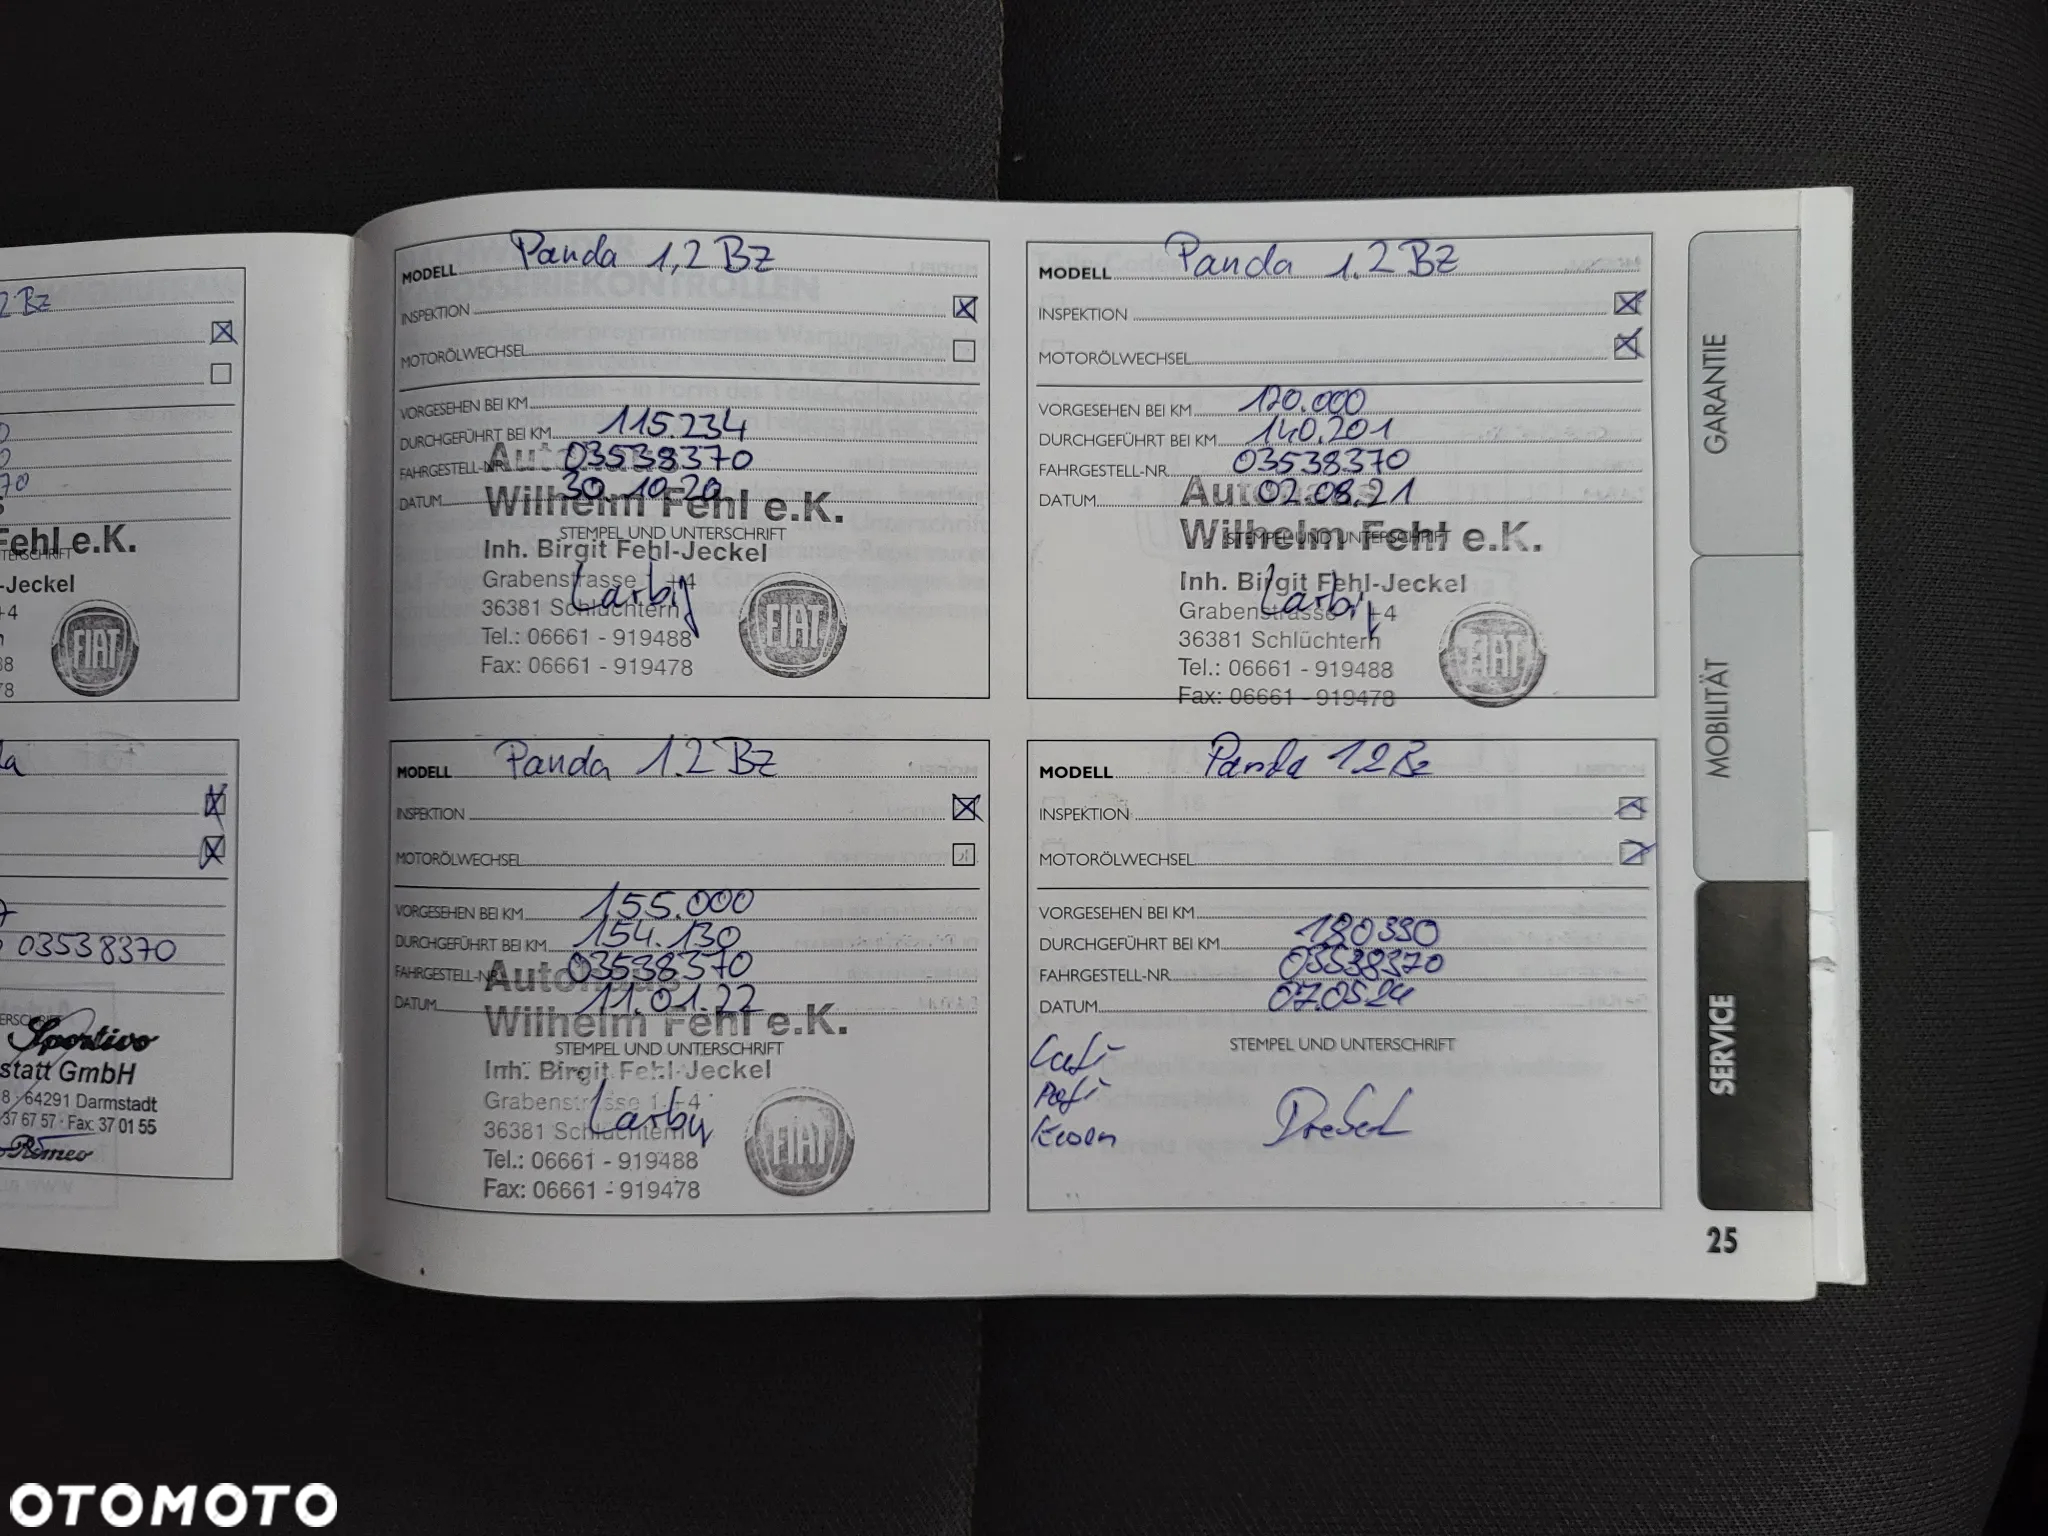 2 Bz
70
Fehl e.K.
TERSCHRIFT
-Jeckel
+4
88
78
FIAT
la
03538370
ERSCHRIFT
Sportivo
statt GmbH
8 · 64291 Darmstadt
37 67 57 · Fax: 37 01 55
Romeo
MODELL Panda 1,2 Bz
INSPEKTION
MOTORÖLWECHSEL
VORGESEHEN BEI KM
DURCHGEFÜHRT BEI KM 115.234
FAHRGESTELL-NR. 03538370
DATUM 30.10.20
Wilhelm Fehl e.K.
STEMPEL UND UNTERSCHRIFT
Inh. Birgit Fehl-Jeckel
Grabenstrasse 1+4
36381 Schlüchtern
Tel.: 06661 - 919488
Fax: 06661 - 919478
FIAT
MODELL Panda 1.2 Bz
INSPEKTION
MOTORÖLWECHSEL
VORGESEHEN BEI KM 120.000
DURCHGEFÜHRT BEI KM 140.201
FAHRGESTELL-NR. 03538370
DATUM 02.08.21
Wilhelm Fehl e.K.
STEMPEL UND UNTERSCHRIFT
Inh. Birgit Fehl-Jeckel
Grabenstrasse 1+4
36381 Schlüchtern
Tel.: 06661 - 919488
Fax: 06661 - 919478
FIAT
MODELL Panda 1.2 Bz
INSPEKTION
MOTORÖLWECHSEL
VORGESEHEN BEI KM 155.000
DURCHGEFÜHRT BEI KM 154.130
FAHRGESTELL-NR. 03538370
DATUM 11.01.22
Autohaus
Wilhelm Fehl e.K.
STEMPEL UND UNTERSCHRIFT
Inh. Birgit Fehl-Jeckel
Grabenstrasse 1+4
36381 Schlüchtern
Tel.: 06661 - 919488
Fax: 06661 - 919478
FIAT
MODELL Panda 1.2 Bz
INSPEKTION
MOTORÖLWECHSEL
VORGESEHEN BEI KM
DURCHGEFÜHRT BEI KM
FAHRGESTELL-NR. 03538370
DATUM 07.05.24
STEMPEL UND UNTERSCHRIFT
GARANTIE
MOBILITÄT
SERVICE
25
OTOMOTO